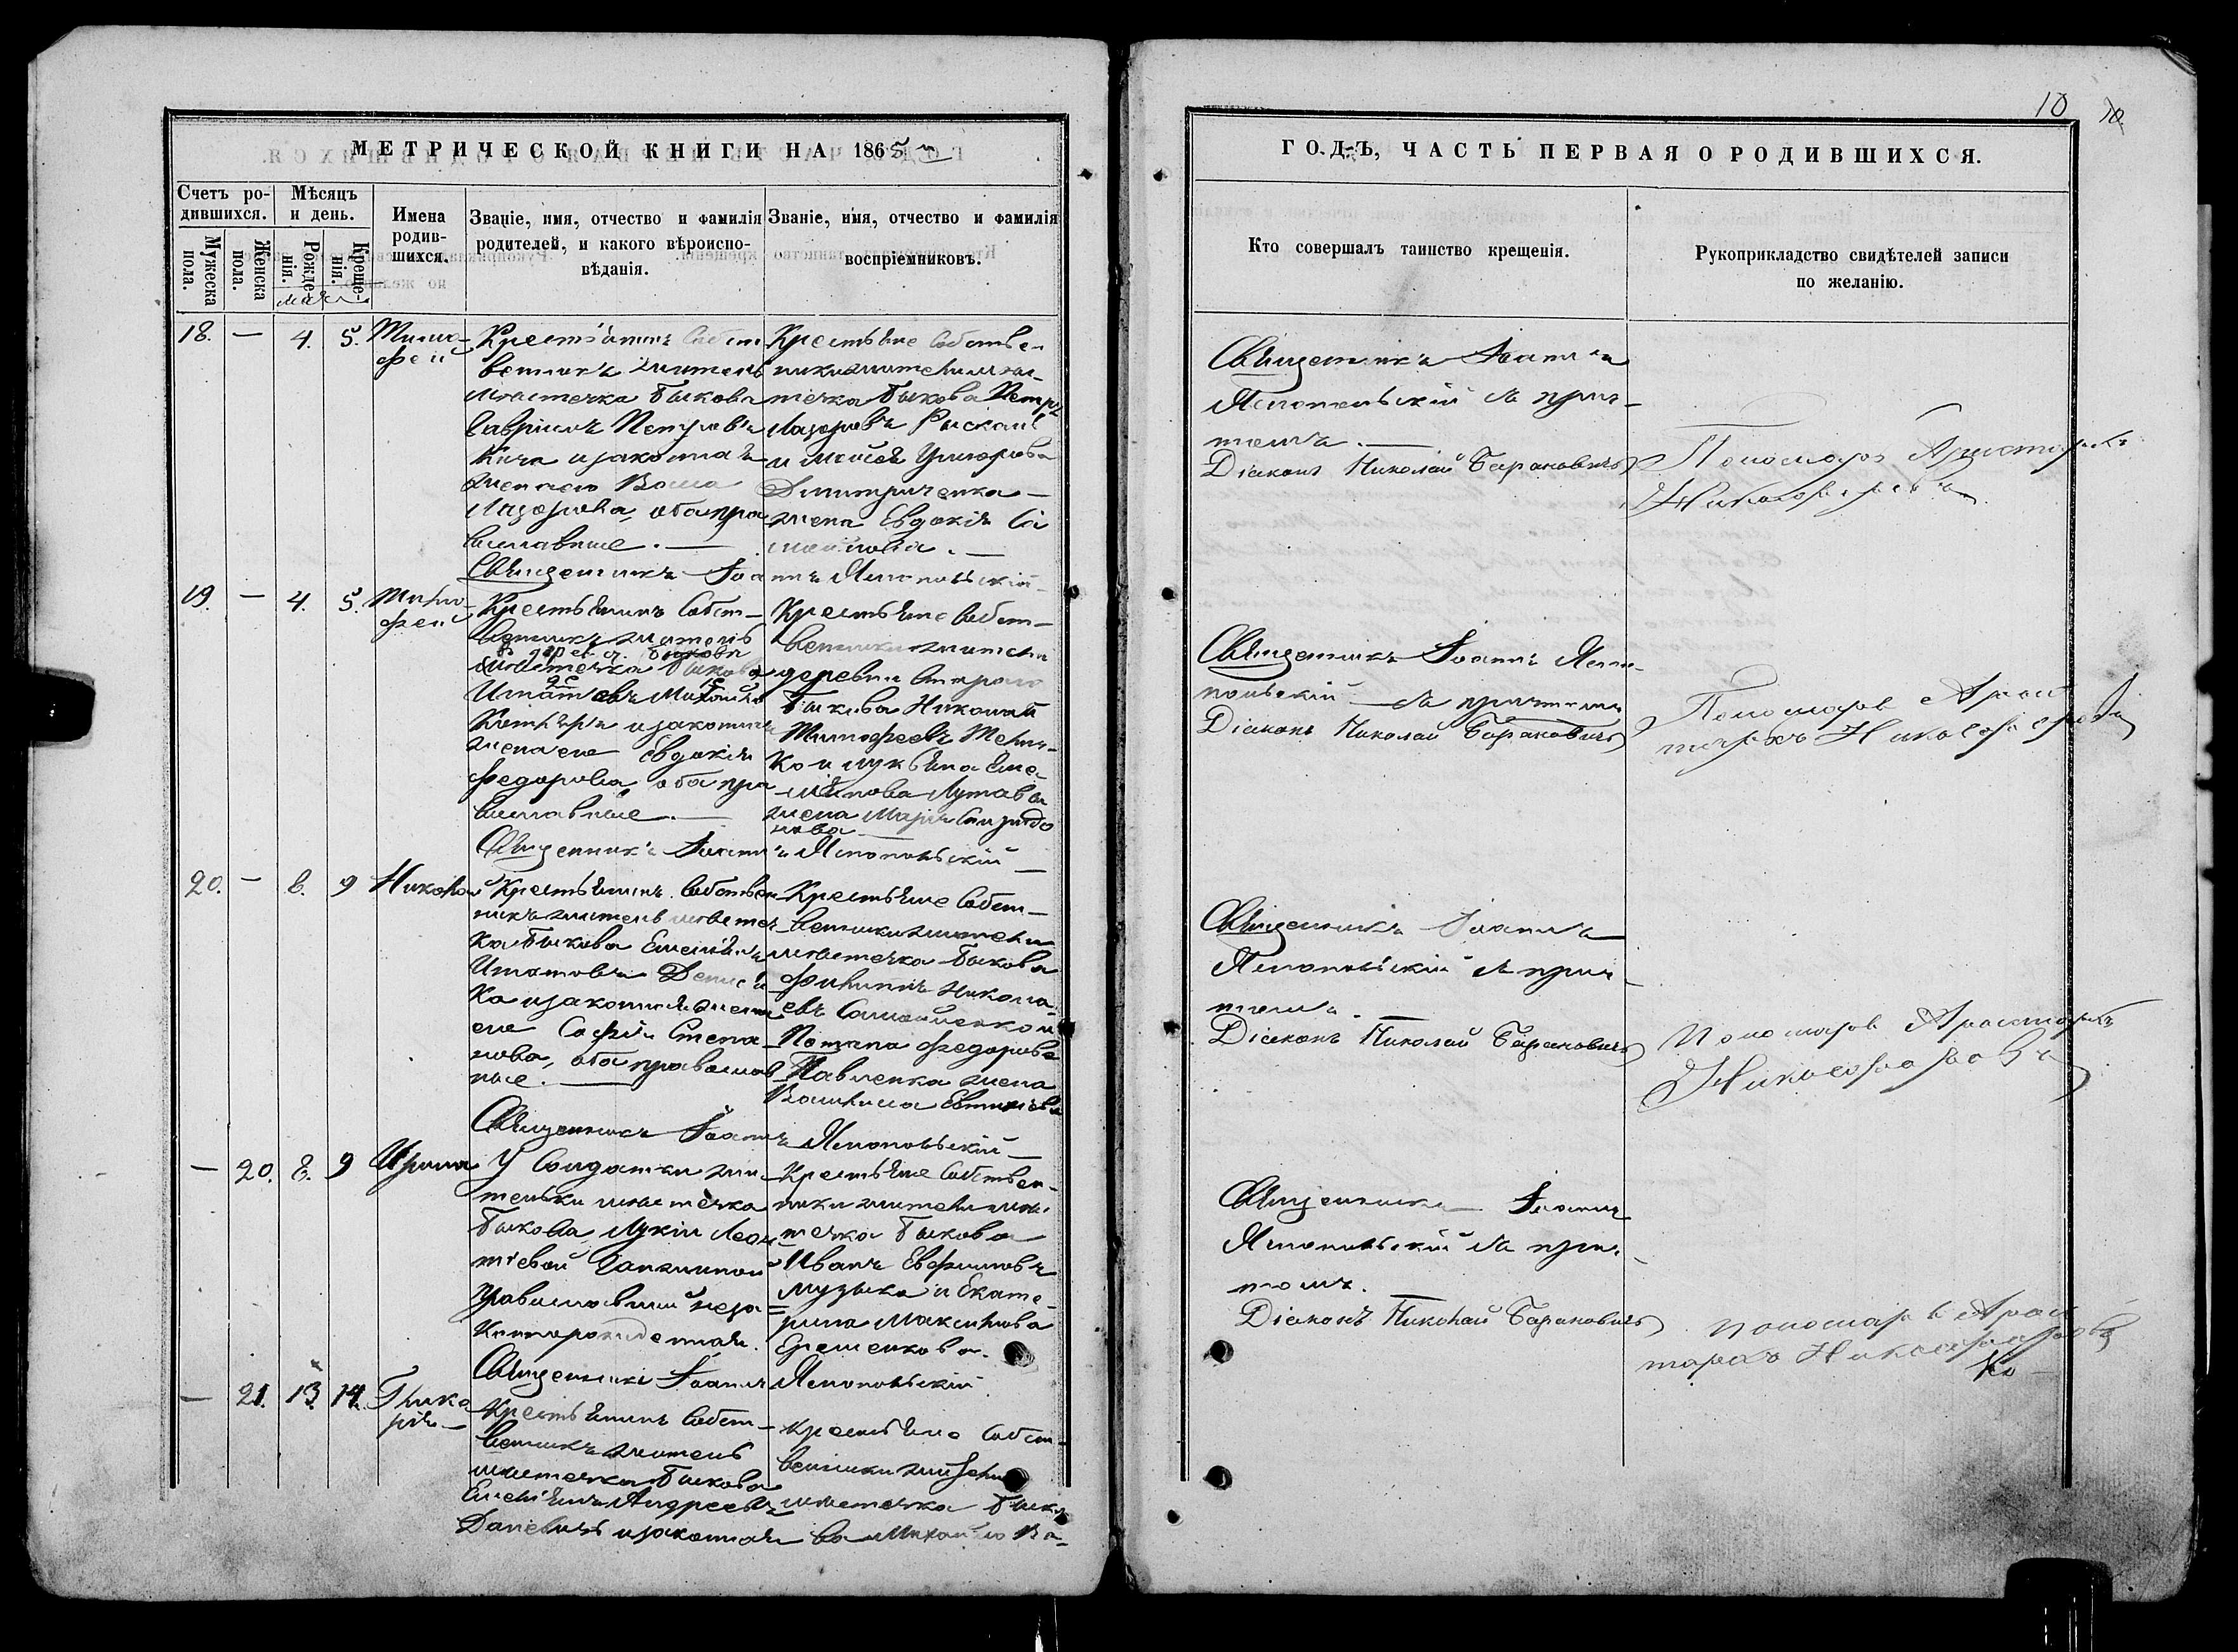 МЕТРИЧЕСКОЙ КНИГИ НА 1865
Счетъ ро-
дившихся.
Мѣсяцъ
и день.
Мужеска
пола.
Женска
пола.
Рожде-
нія.
Креще-
нія.
Имена
родив-
шихся.
Званіе, имя, отчество и фамилія
родителей, и какого вѣроиспо-
вѣданія.
Званіе, имя, отчество и фамилія
воспріемниковъ.
18. — 4. 5.
Тимо-
фей
Крестьянинъ Собст
венникъ житель
мѣстечка Быкова
Гавріилъ Петровъ
и законная
жена его
Лазорева, оба пра
вославные. —
Крестьяне Собствен-
ники жители мѣс-
течка Быкова Петръ
Лазоровъ
и
Дмитриченка —
жена Евдокія
Священникъ Іоаннъ Ямпольскій
19. — 4. 5.
Тимо-
фей
Крестьянинъ Собст-
венникъ житель
мѣстечка Быкова
и законная
жена его Евдокія
Федорова, оба пра
вославные. —
Крестьяне Собст-
венники жители
деревни Стараго
Быкова Николай
Тимофеевъ
Ко и Лукьяна Еме-
льянова
жена Марія Спиридо
нова
Священникъ Іоаннъ Ямпольскій —
20. — 8. 9
Никонъ
Крестьянинъ Собствен
никъ житель мѣстеч
ка Быкова Емельянъ
Игнатовъ Денисен
ко и законная жена
его Софія Степа
нова, оба православ
ные. —
Крестьяне Собст-
венники жители
мѣстечка Быкова
Филиппъ Никола
евъ Самойленко и
Потапа Федорова
Павленка жена
Священникъ Іоаннъ Ямпольскій —
— 20. 8. 9
Ирина
У Солдатки жи-
тельки мѣстечка
Быкова, Лукіи Леон
тіевой
Православной неза-
коннорожденная.
Крестьяне Собствен-
ники жители мѣс-
течка Быкова
Иванъ Евфимовъ
Музыка и Екате-
рина Максимова
Еременкова.
Священникъ Іоаннъ Ямпольскій
— 21. 13. 14.
Глике
рія —
Крестьянинъ Собст-
венникъ житель
мѣстечка Быкова
Емельянъ Андреевъ
Даневичъ и законная
Крестьяне Собст-
венники жители
мѣстечка Быко
ва Михайло Ва-
10
ГОДЪ, ЧАСТЬ ПЕРВАЯ О РОДИВШИХСЯ.
Кто совершалъ таинство крещенія.
Рукоприкладство свидѣтелей записи
по желанію.
Священникъ Іоаннъ
Ямпольскій съ прич-
томъ. —
Діаконъ Николай Барановичъ
Пономарь Аристархъ
Никифоровъ
Священникъ Іоаннъ Ямп-
польскій съ причтомъ
Діаконъ Николай Барановичъ
Пономарь Арис
тархъ Никифоровъ
Священникъ Іоаннъ
Ямпольскій съ прич-
томъ.
Діаконъ Николай Барановичъ
Пономарь Аристархъ
Никифоровъ
Священникъ Іоаннъ
Ямпольскій съ прич-
томъ.
Діаконъ Николай Барановичъ
Пономарь Арис
тархъ Никифоровъ